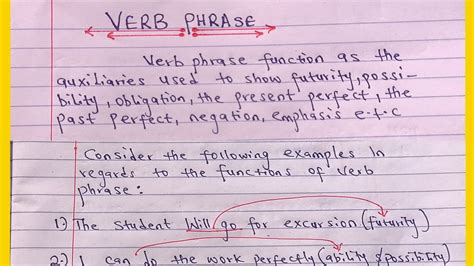 VERB PHRASE
Verb phrase function as the
auxiliaries used to show futurity, possi-
bility, obligation, the present perfect, the
past perfect, negation, emphasis e.t.c
Consider the following examples In
regards to the functions of verb
phrase:
1.) The student Will go for excursion (futurity)
2.) I can do the work perfectly (ability & possibility)